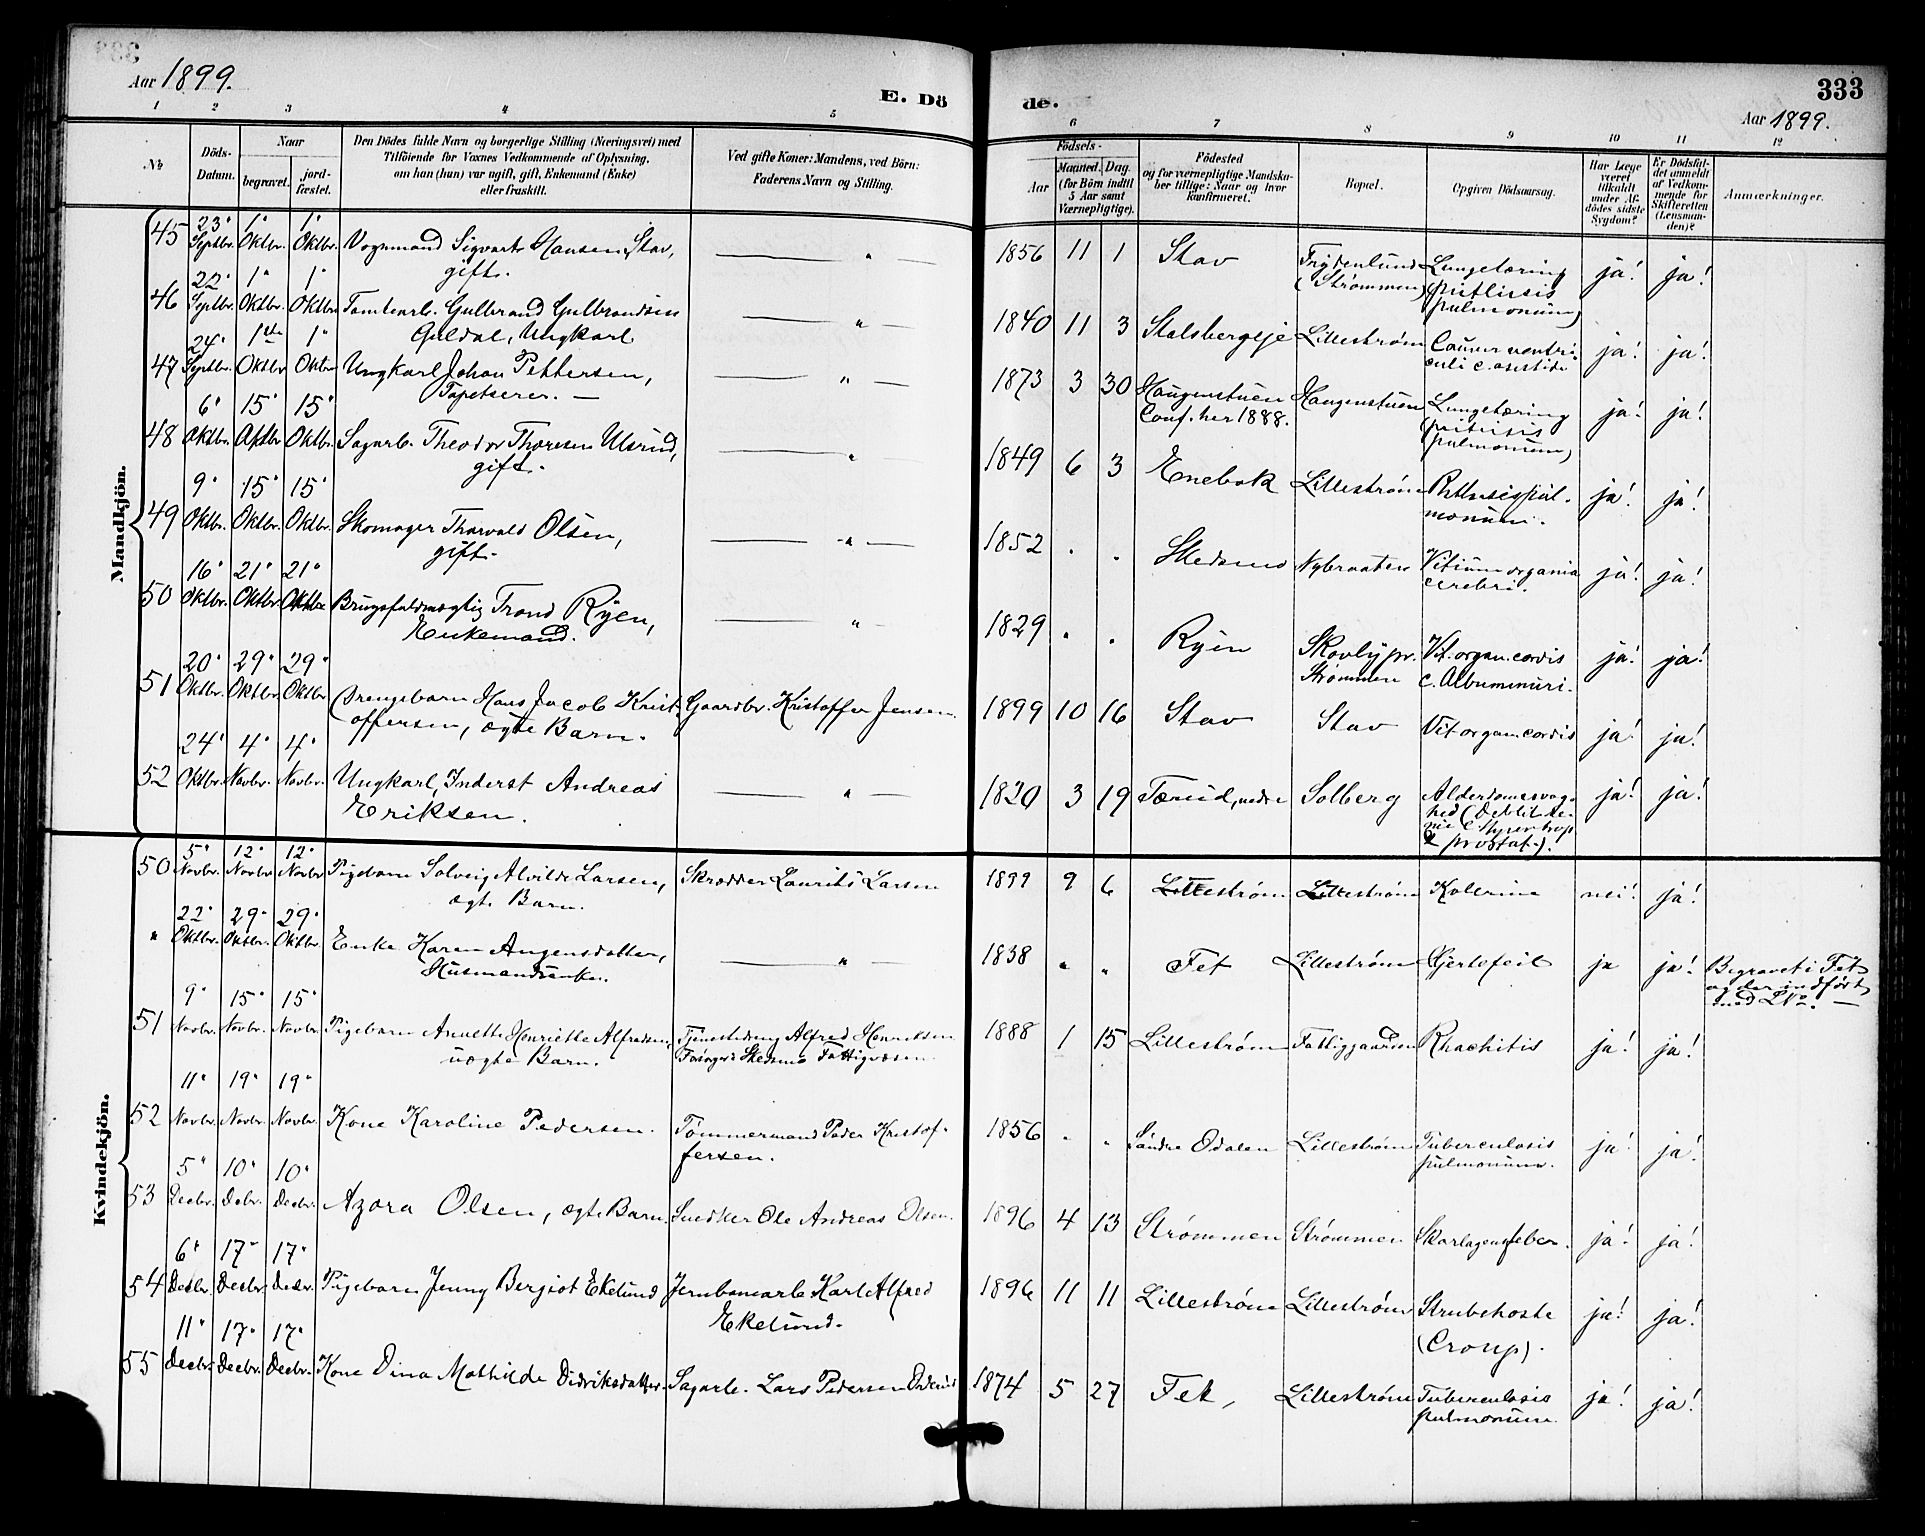 333
Aar 1899.
E. Dö
de.
Aar 1899.
1 2 3 4 5
6 7 8 9 10 11 12
No
Döds-
Datum.
Naar
begravet.
jord-
fæstet.
Den Dödes fulde Navn og borgerlige Stilling (Næringsvei) med
Tilföiende for Voxnes Vedkommende af Oplysning,
om han (hun) var ugift, gift, Enkemand (Enke)
eller fraskilt.
Ved gifte Koner: Mandens, ved Börn:
Faderens Navn og Stilling.
Födsels-
Aar
Maaned. Dag.
(for Börn indtil
5 Aar samt
Værnepligtige).
Födested
og for værnepligtige Mandska-
ber tillige: Naar og hvor
konfirmeret.
Bopæl.
Opgiven Dödsaarsag.
Har Læge
været
tilkaldt
under Af-
dödes sidste
Sygdom?
Er Dödsfal-
det anmeldt
af Vedkom-
mende for
Skifteretten
(Lensman-
den)?
Anmærkninger.
Mandkjön.
45 23' Septbr. 1' Oktbr. 1' Oktbr. Vognmand Sigvart Hansen Stav, " 1856 11 1 Stav Frydenlund Lungetæring ja! ja!
gift. (Strømmen) (phthisis
pulmonum)
46 22' Septbr. 1' Oktbr. 1' Oktbr. Tomtearb. Gulbrand Gulbrandsen " 1840 11 3 Stalsbergeje Lillestrøm Cancer ventri- ja! ja!
Guldal, Ungkarl culi c.
47 24' Septbr. 1ste Oktbr 1' Oktbr Ungkarl Johan Pettersen, " 1873 3 30 Haugenstuen Haugenstuen Lungetæring ja! ja!
Tapetserer. — Conf. her 1888. (phthisis
pulmonum)
48 6' Oktbr. 15' 15' Oktbr. Sagarb. Theodor Thoresen Ulsrud, " 1849 6 3 Enebak Lillestrøm Phthisis pul- ja! ja!
gift. monum.
49 9' Oktbr. 15' Oktbr. 15' Oktbr. Skomager Thorvald Olsen, " 1852 " " Skedsmo Nybraaten Vitium organia ja! ja!
gift. cerebri.
50 16' Oktbr. 21' Oktbr. 21' Oktbr Brugsfuldmægtig Trond Ryen, " 1829 " " Ryen Skovly pr. Vit. organ. cordis ja! ja!
Enkemand. Strømmen c. Albuminuri.
51 20' Oktbr. 29' Oktbr. 29' Oktbr Drengebarn Hans Jacob Krist- Gaardbr. Kristoffer Jensen 1899 10 16 Stav Stav Vit organ. cordis ja! ja!
offersen, ægte Barn.
52 24' Oktbr. 4' Novbr. 4' Novbr. Ungkarl, Inderst Andreas " 1820 3 19 Tærud, nedre Solberg Alderdomssvag- ja! ja!
Eriksen. hed (Debilitas
prostat.).
Kvindekjön.
50 5' Novbr. 12' Novbr 12' Novbr Pigebarn Solveig Alvilde Larsen, Skrædder Laurits Larsen 1899 9 6 Lillestrøm Lillestrøm Kolerine nei! ja!
ægte Barn.
" 22' Oktbr. 29' Oktbr. 29' Oktbr. Enke Karen Augensdatter, " 1838 " " Fet Lillestrøm Hjertefeil ja ja! Begravet i Fet
Husmandsenke. og der indført
med No. —
51 9' Novbr. 15' Novbr. 15' Novbr. Pigebarn Annette Henriette Alfredsen, Tjenestedreng Alfred Henriksen 1888 1 15 Lillestrøm Fattiggaarden Rhachitis ja! ja!
uægte Barn. Skedsmo Fattigvæsen.
52 11' Novbr. 19' Novbr. 19' Novbr. Kone Karoline Pedersen. Tømmermand Peder Kristof- 1856 " " Søndre Odalen Lillestrøm Tuberculosis ja! ja!
fersen. pulmonum.
53 5' Decbr. 10' Decbr. 10' Decbr. Azora Olsen, ægte Barn. Snedker Ole Andreas Olsen. 1896 4 13 Strømmen Strømmen Skarlagensfeber. ja! ja!
54 6' Decbr. 17' Decbr. 17' Decbr. Pigebarn Jenny Bergiot Ekelund Jernbanearb. Karl Alfred 1896 11 11 Lillestrøm Lillestrøm Strubehoste ja! ja!
Ekelund. (Croup).
55 11' Decbr. 17' Decbr. 17' Decbr. Kone Dina Mathilde Didriksdatter. Sagarb. Lars Pedersen 1874 5 27 Fet, Lillestrøm Tuberculosis ja! ja!
pulmonum.